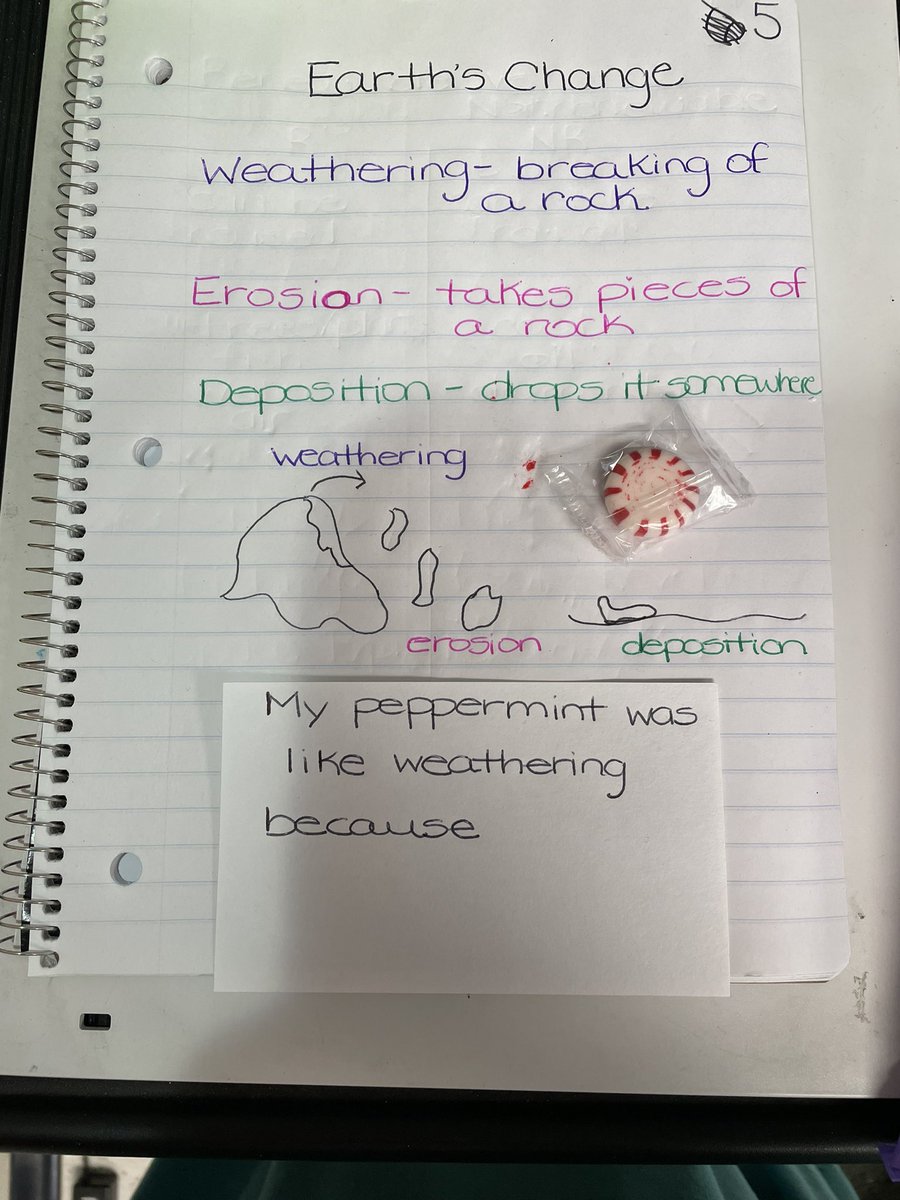 5
Earth's Change
Weathering- breaking of
a rock.
Erosion- takes pieces of
a rock
Deposition - drops it somewhere
weathering
erosion
deposition
My peppermint was
like weathering
because